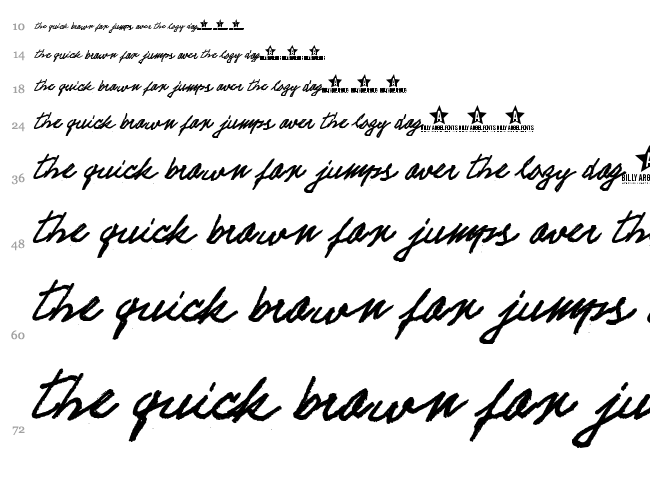 10 the quick brown fox jumps over the lazy dog
14 the quick brown fox jumps over the lazy dog
18 the quick brown fox jumps over the lazy dog
24 the quick brown fox jumps over the lazy dog BILLY ARGEL FONTS BILLY ARGEL FONTS BILLY ARGEL FONTS
36 the quick brown fox jumps over the lazy dog BILLY ARG
48 the quick brown fox jumps over th
60 the quick brown fox jumps
72 the quick brown fox ju